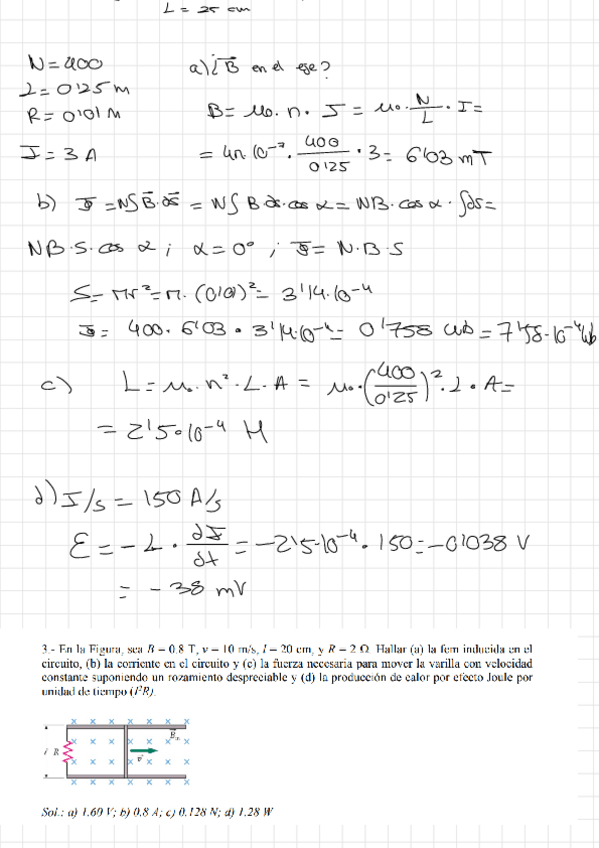 L = 25 cm
N = 400
a) ¿B⃗ en el eje?
L = 0'25 m
R = 0'01 M
B = μ₀ · n · I = μ₀ · N/L · I =
I = 3 A
= 4π·10⁻⁷ · 400/0'25 · 3 = 6'03 mT
b) Φ = N∫B⃗·ds⃗ = N∫B·ds·cos α = NB·cos α · ∫ds =
NB·S·cos α ; α = 0° ; Φ = N·B·S
S = πr² = π·(0'01)² = 3'14·10⁻⁴
Φ = 400 · 6'03 · 3'14·10⁻⁴ = 0'758 Wb = 7'58·10⁻⁴ Wb
c) L = μ₀·n²·L·A = μ₀·(400/0'25)²·L·A =
= 2'5·10⁻⁴ H
d) I/s = 150 A/s
ε = -L · dI/dt = -2'5·10⁻⁴ · 150 = -0'038 V
= -38 mV
3.- En la Figura, sea B = 0.8 T, v = 10 m/s, l = 20 cm, y R = 2 Ω. Hallar (a) la fem inducida en el
circuito, (b) la corriente en el circuito y (c) la fuerza necesaria para mover la varilla con velocidad
constante suponiendo un rozamiento despreciable y (d) la producción de calor por efecto Joule por
unidad de tiempo (I²R).
B⃗
l R
v⃗
Sol.: a) 1.60 V; b) 0.8 A; c) 0.128 N; d) 1.28 W